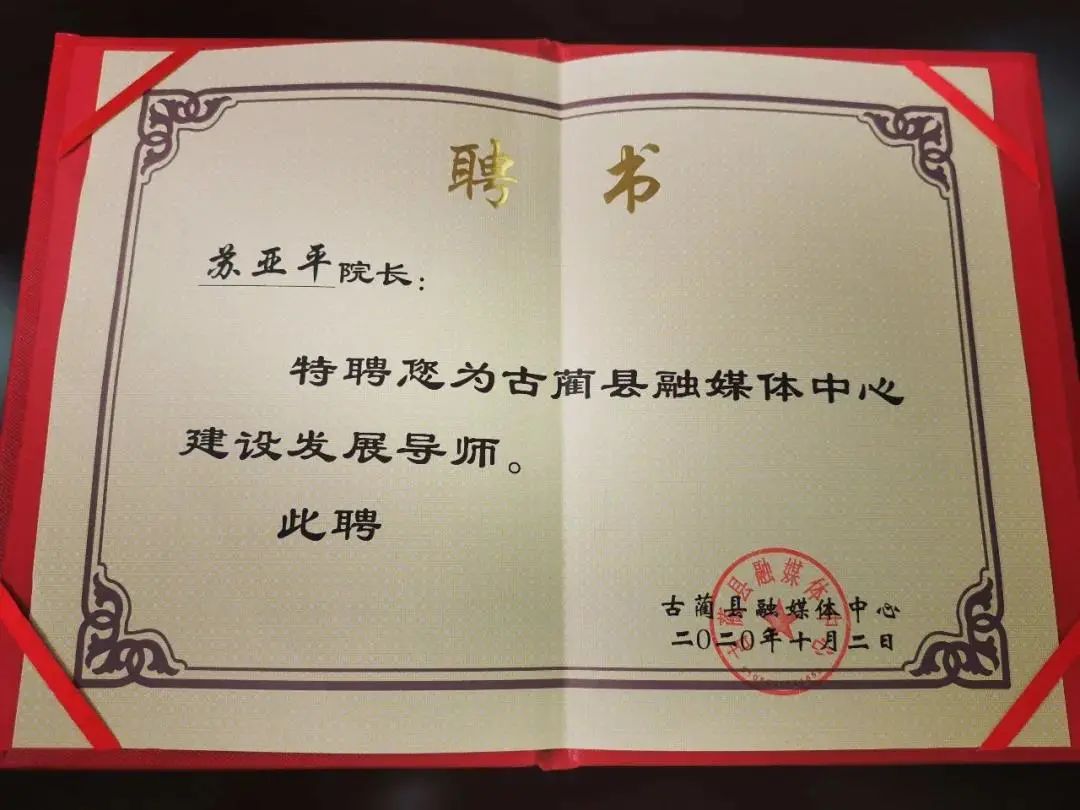 聘 书
苏亚平院长：
特聘您为古蔺县融媒体中心
建设发展导师。
此聘
古蔺县融媒体中心
二〇二〇年十月二日
古蔺县融媒体中心